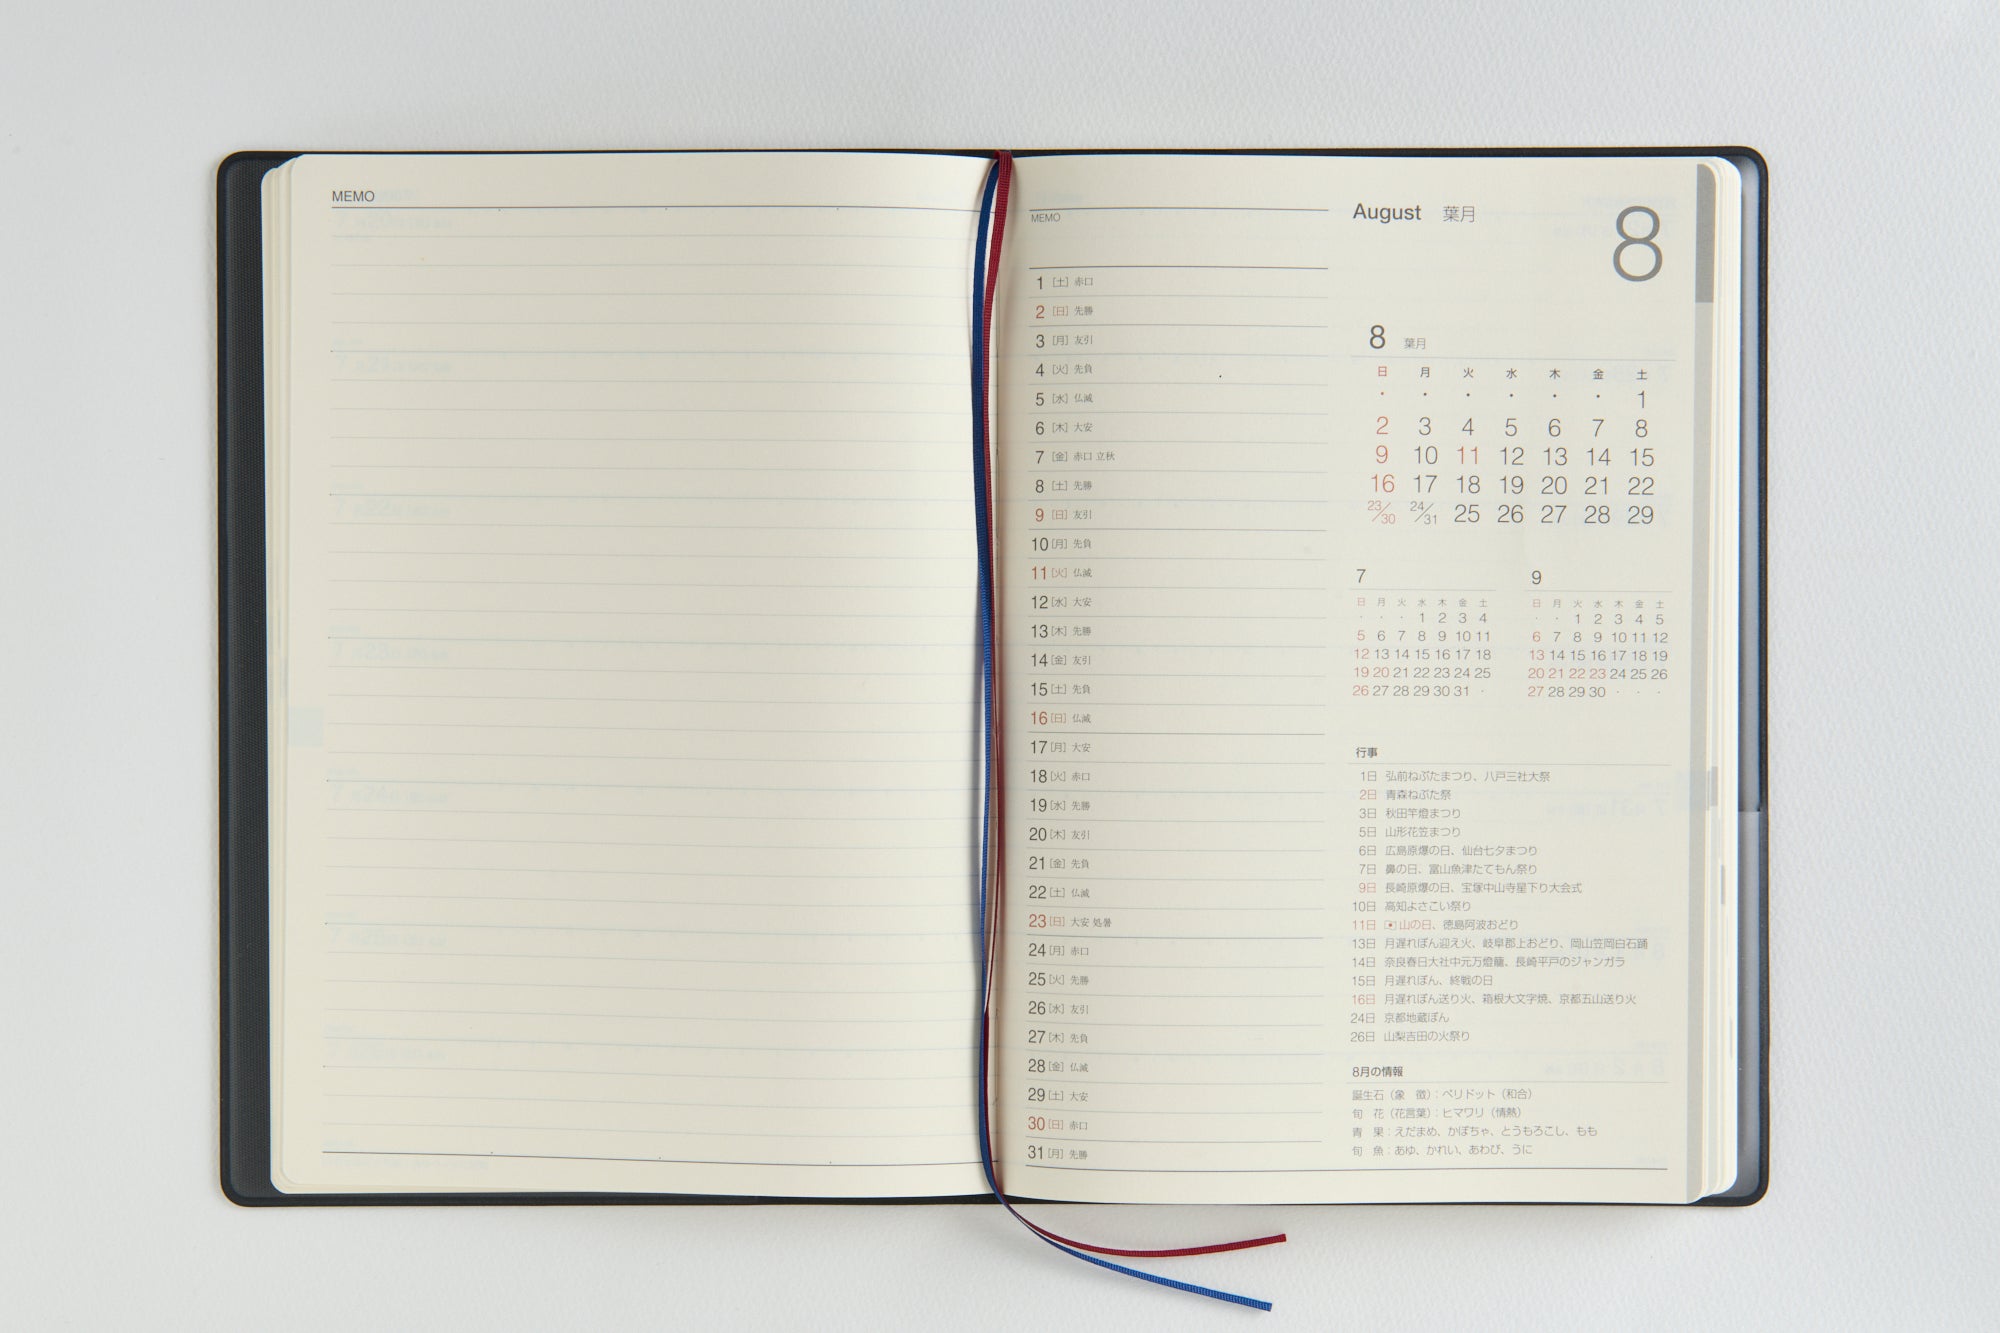 MEMO
MEMO
1 [土] 赤口
2 [日] 先勝
3 [月] 友引
4 [火] 先負
5 [水] 仏滅
6 [木] 大安
7 [金] 赤口 立秋
8 [土] 先勝
9 [日] 友引
10 [月] 先負
11 [火] 仏滅
12 [水] 大安
13 [木] 先勝
14 [金] 友引
15 [土] 先負
16 [日] 仏滅
17 [月] 大安
18 [火] 赤口
19 [水] 先勝
20 [木] 友引
21 [金] 先負
22 [土] 仏滅
23 [日] 大安 処暑
24 [月] 赤口
25 [火] 先勝
26 [水] 友引
27 [木] 先負
28 [金] 仏滅
29 [土] 大安
30 [日] 赤口
31 [月] 先勝
August 葉月
8
8 葉月
日 月 火 水 木 金 土
・ ・ ・ ・ ・ ・ 1
2 3 4 5 6 7 8
9 10 11 12 13 14 15
16 17 18 19 20 21 22
23/30 24/31 25 26 27 28 29
7
日 月 火 水 木 金 土
・ ・ ・ 1 2 3 4
5 6 7 8 9 10 11
12 13 14 15 16 17 18
19 20 21 22 23 24 25
26 27 28 29 30 31 ・
9
日 月 火 水 木 金 土
・ ・ 1 2 3 4 5
6 7 8 9 10 11 12
13 14 15 16 17 18 19
20 21 22 23 24 25 26
27 28 29 30 ・ ・ ・
行事
1日 弘前ねぷたまつり、八戸三社大祭
2日 青森ねぶた祭
3日 秋田竿燈まつり
5日 山形花笠まつり
6日 広島原爆の日、仙台七夕まつり
7日 鼻の日、富山魚津たてもん祭り
9日 長崎原爆の日、宝塚中山寺星下り大会式
10日 高知よさこい祭り
11日 山の日、徳島阿波おどり
13日 月遅れぼん迎え火、岐阜郡上おどり、岡山笠岡白石踊
14日 奈良春日大社中元万燈籠、長崎平戸のジャンガラ
15日 月遅れぼん、終戦の日
16日 月遅れぼん送り火、箱根大文字焼、京都五山送り火
24日 京都地蔵ぼん
26日 山梨吉田の火祭り
8月の情報
誕生石（象 徴）：ペリドット（和合）
旬 花（花言葉）：ヒマワリ（情熱）
青 果：えだまめ、かぼちゃ、とうもろこし、もも
旬 魚：あゆ、かれい、あわび、うに